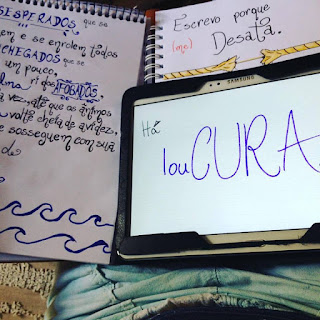 SESPERADOS que se
em e se enrolem todos
CHEGADOS que se
um pouco.
AFOGADOS.
a vez, até que os ânimos
volte cheia de avidez,
e sosseguem com sua
Escrevo porque
(me) Desata.
SAMSUNG
Há
louCURA